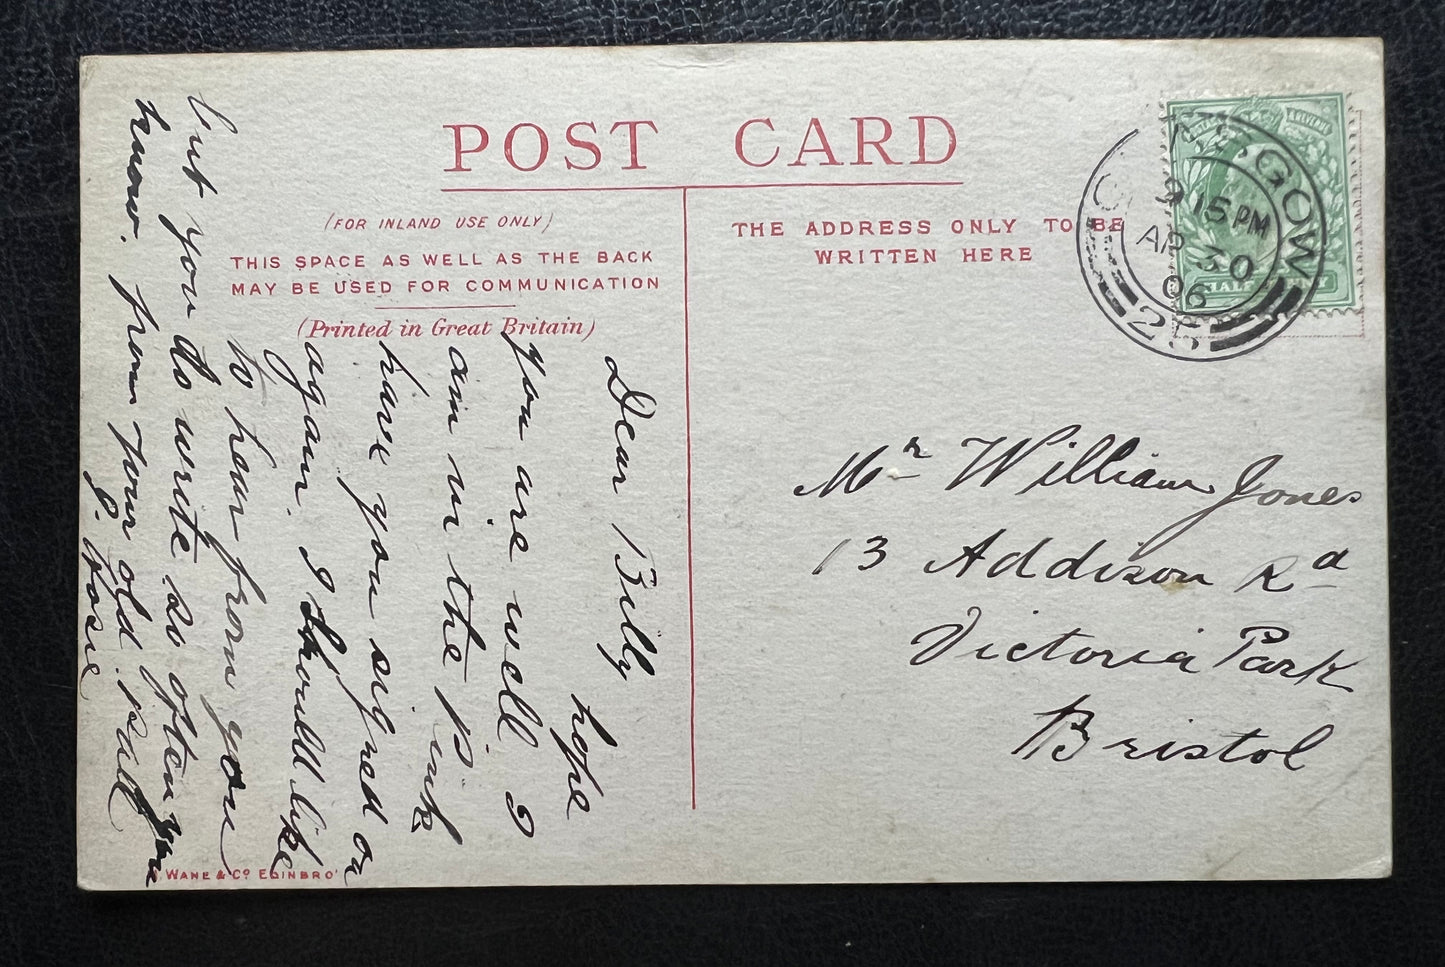 POST CARD
(FOR INLAND USE ONLY)
THIS SPACE AS WELL AS THE BACK
MAY BE USED FOR COMMUNICATION
(Printed in Great Britain)
THE ADDRESS ONLY TO BE
WRITTEN HERE
GLASGOW
9 15 PM
AP 30
06
25
HALF
Dear Billy hope
you are well I
am in the pink
have you signed on
again. I should like
to hear from you
but you do write so often you
know. from your old pall
J.
Mr William Jones
13 Addison Rd
Victoria Park
Bristol
WANE & Co EDINBRO'